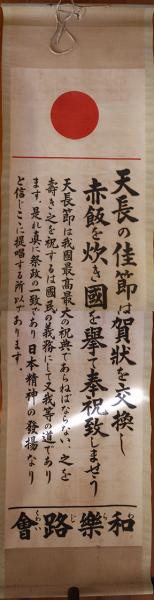 天長の佳節は賀狀を交換し
赤飯を炊き國を擧て奉祝致しませう
天長節は我國最高最大の祝典であらねばならない、之を
壽き之を祝するは國民の義務にして又我等の道であり
ます、是れ真に祭政の一致であり日本精神の發揚なり
と信じこゝに提唱する所以であります。
和樂路會
わらじくわい